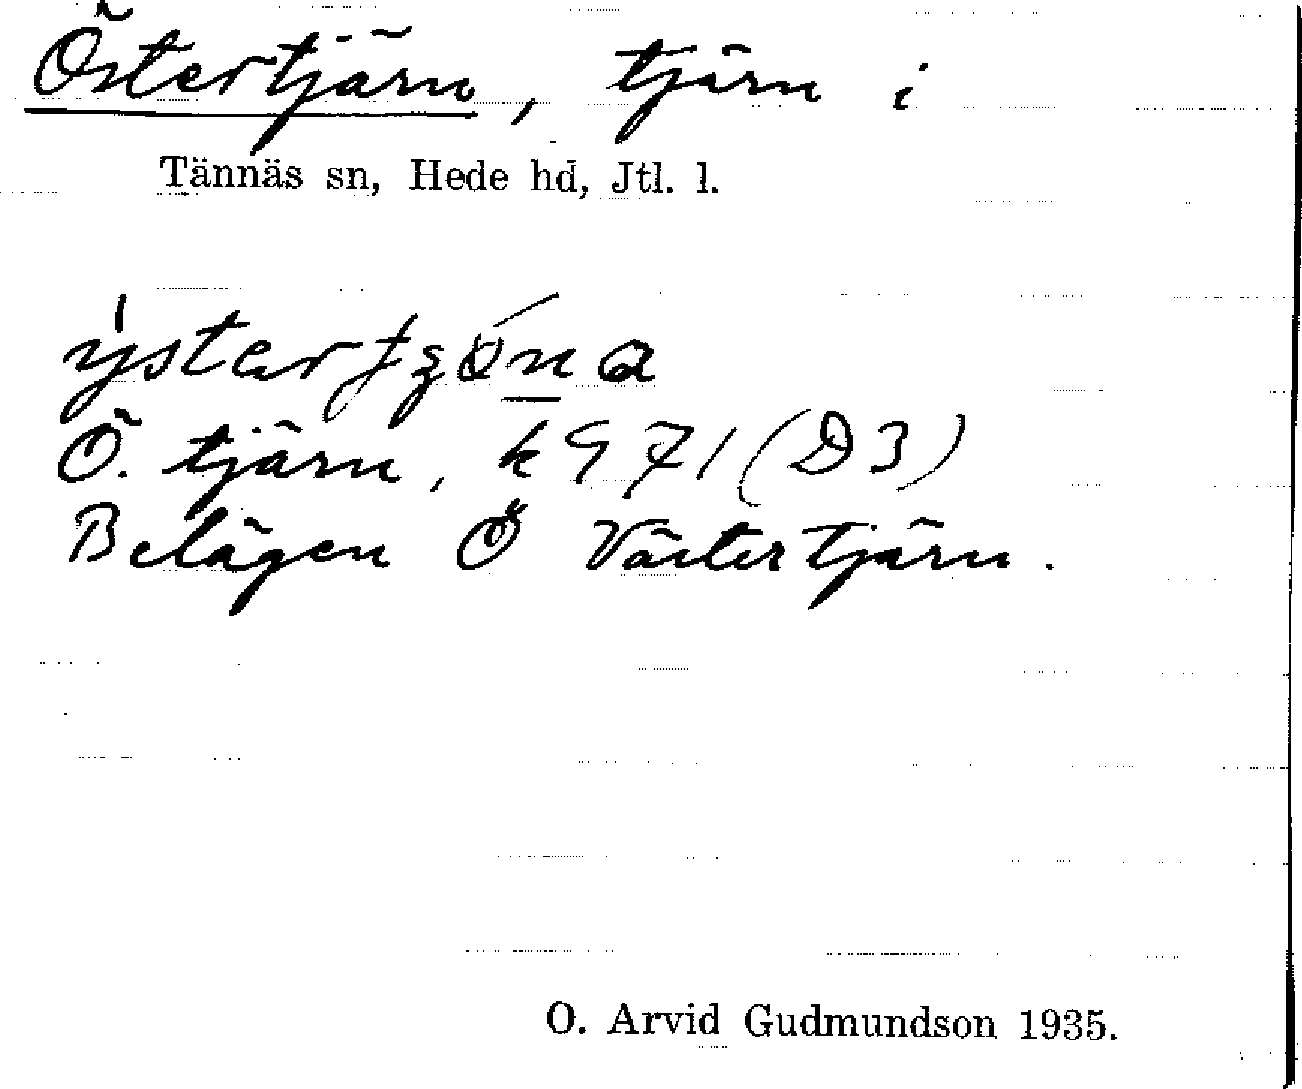 Östertjärn, tjärn i
Tännäs sn, Hede hd, Jtl. l.
Ö. tjärn, k 971 (D3)
Belägen Ö Västertjärn.
O. Arvid Gudmundson 1935.